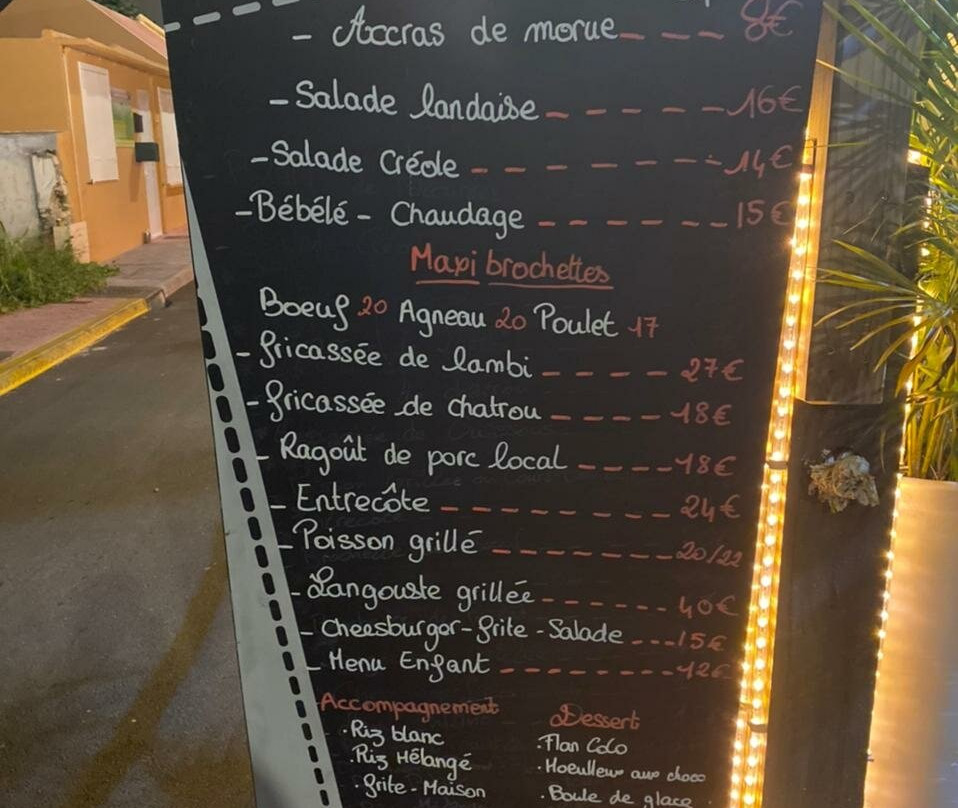 - Accras de morue - - - 8€
- Salade landaise - - - - - 16€
- Salade Créole - - - - - - - - 14€
- Bébélé - Chaudage - - - - - - - 15€
Maxi brochettes
Boeuf 20 Agneau 20 Poulet 17
- fricassée de lambi - - - - 27€
- fricassée de chatrou - - - - 18€
- Ragoût de porc local - - - - 18€
- Entrecôte - - - - - - - - 24€
- Poisson grillé - - - - - - - 20/22
- Langouste grillée - - - - - - 40€
- Cheesburger - frite - Salade - - - 15€
- Menu Enfant - - - - - - - - 12€
Accompagnement
· Riz blanc
· Riz Mélangé
· frite - Maison
Dessert
· Flan Coco
· Moelleux aux choco
· Boule de glace